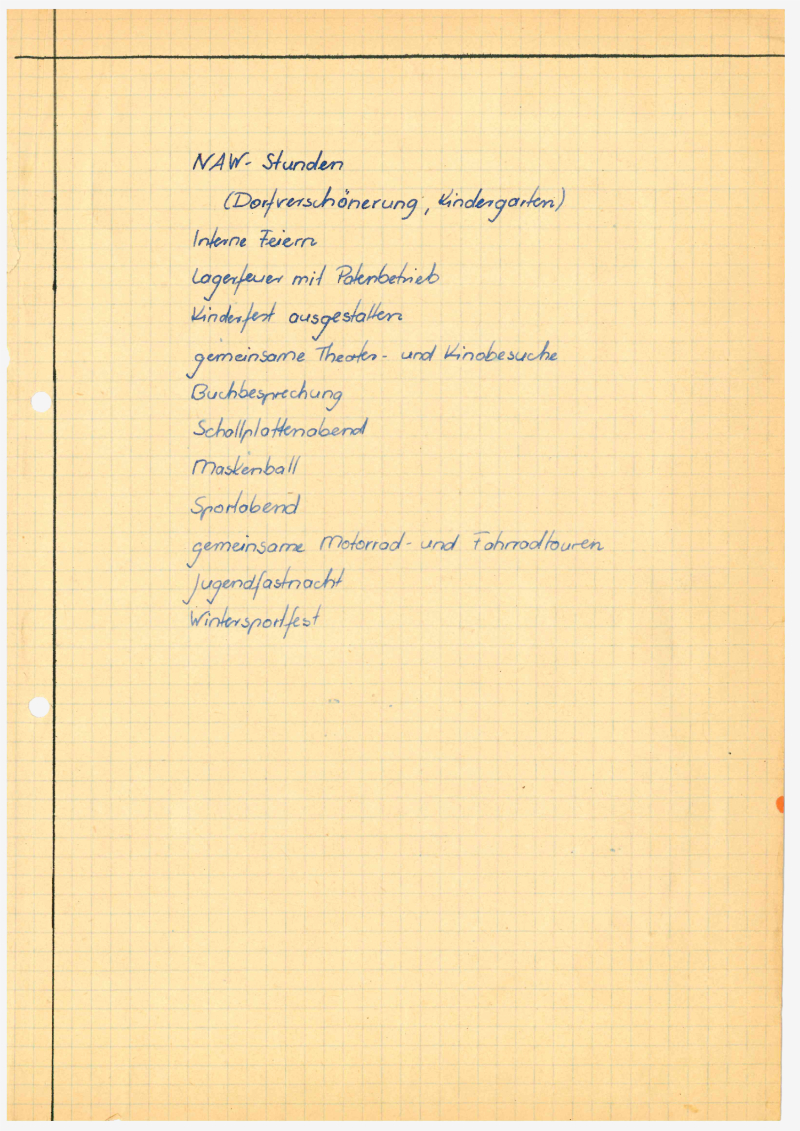 NAW- Stunden
(Dorfverschönerung, Kindergarten)
Interne Feiern
Lagerfeuer mit Patenbetrieb
Kinderfest ausgestalten
gemeinsame Theater- und Kinobesuche
Buchbesprechung
Schallplattenabend
Maskenball
Sportabend
gemeinsame Motorrad- und Fahrradtouren
Jugendfastnacht
Wintersportfest